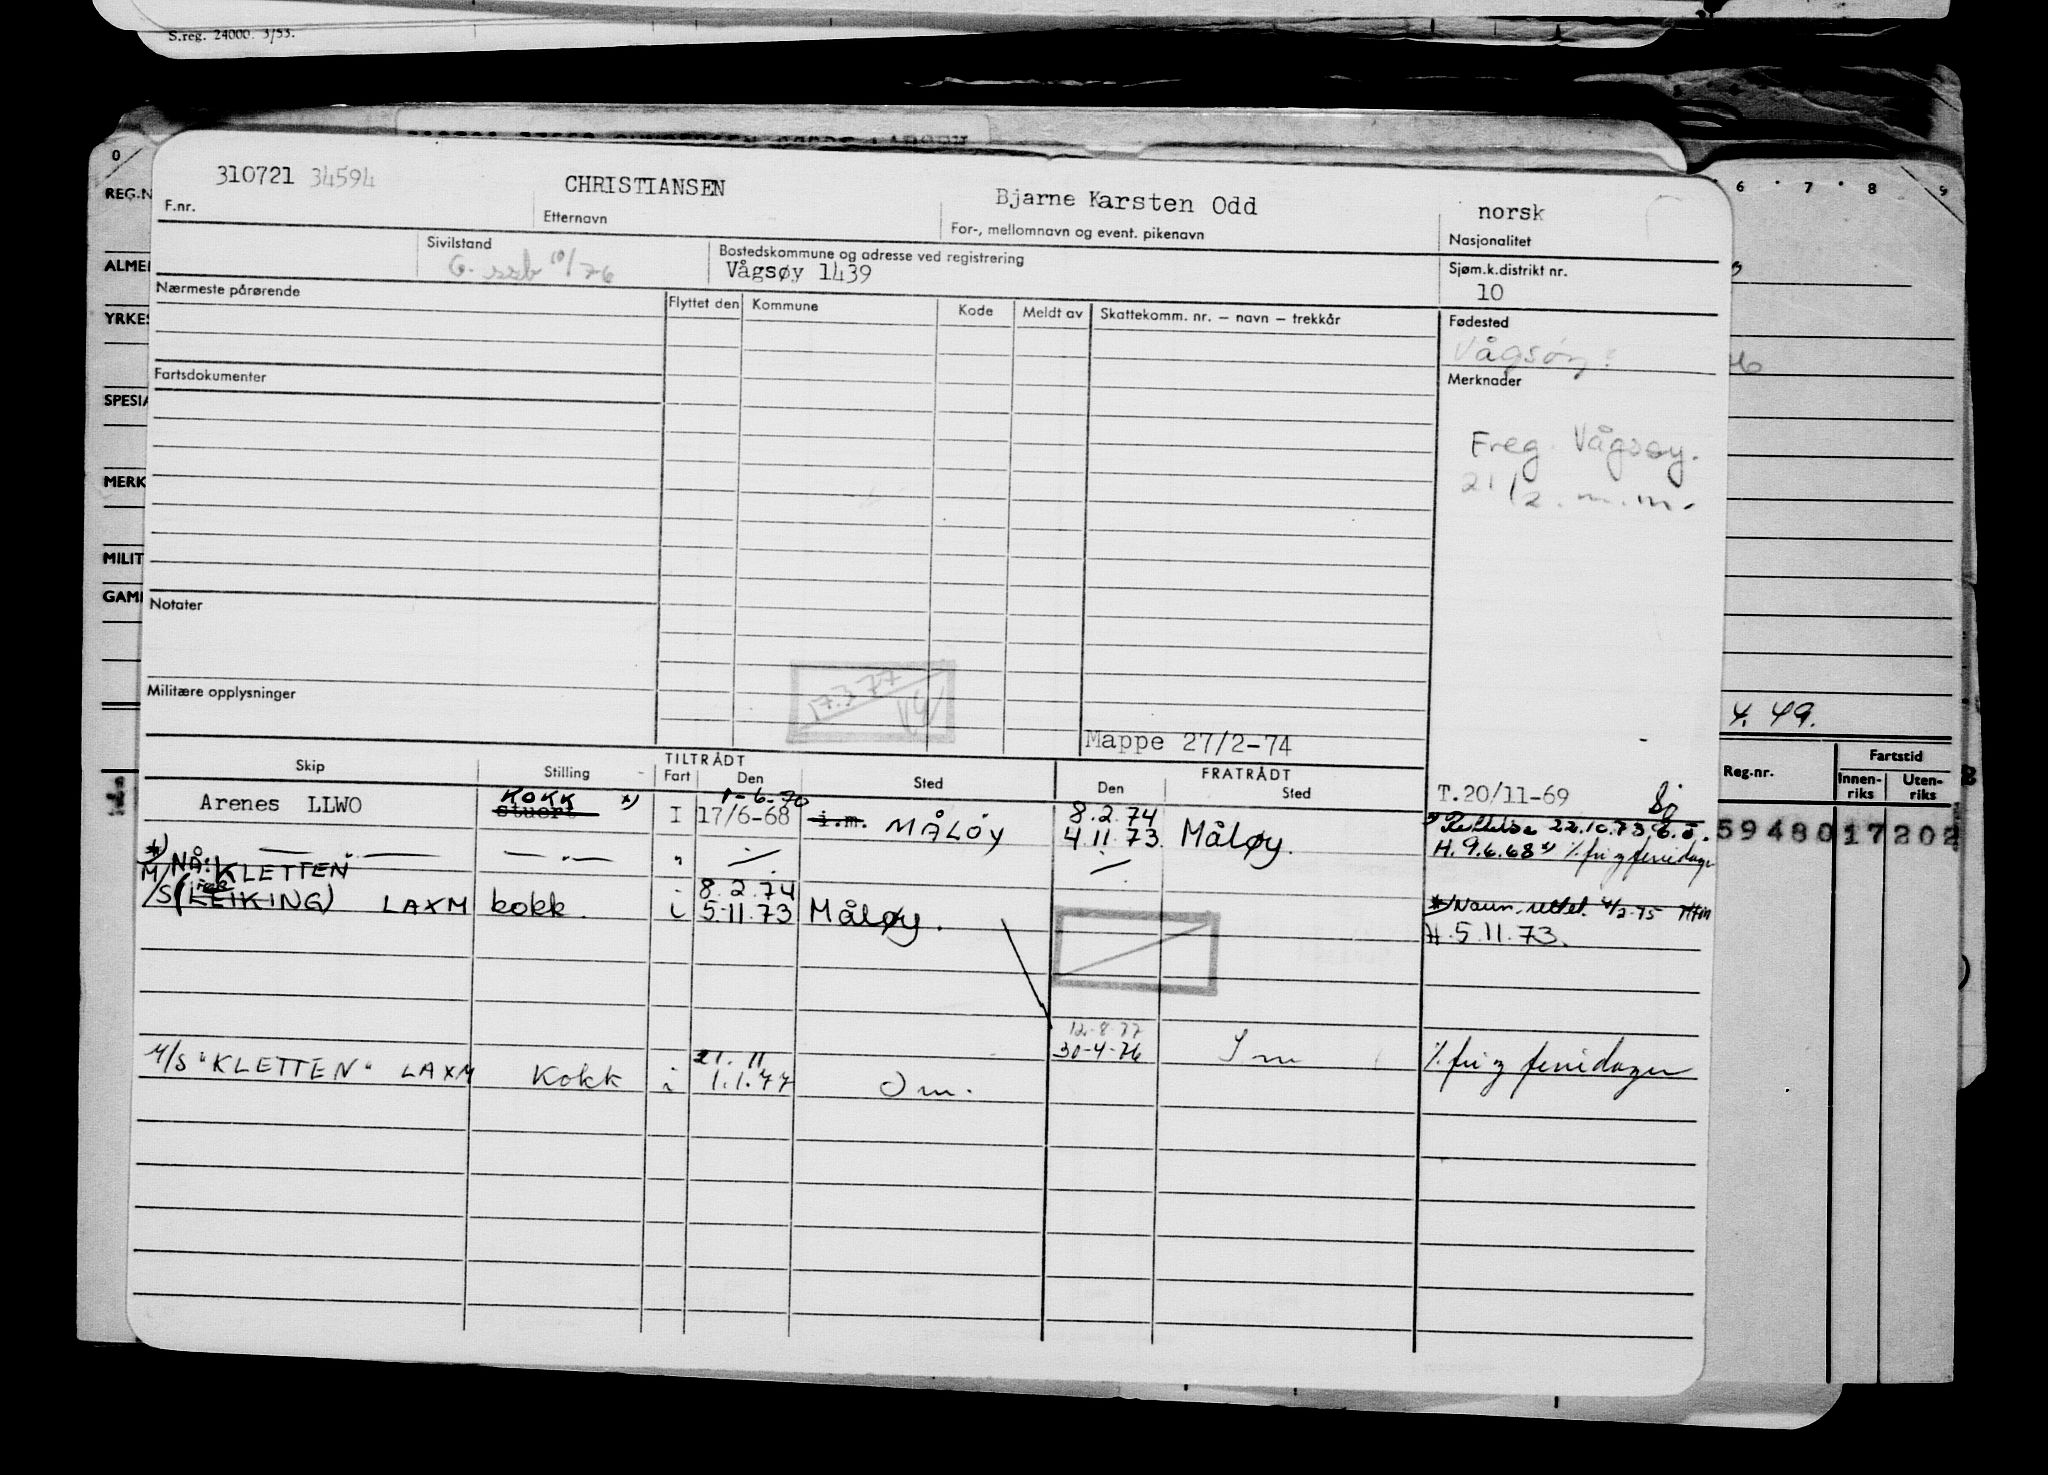 S.reg. 24000. 3/53.
0
6 7 8 9
REG.N
ALMEI
YRKES
SPESIA
MERK
MILIT
GAMI
310721 34594 CHRISTIANSEN Bjarne Karsten Odd norsk
F.nr. Etternavn For-, mellomnavn og event. pikenavn Nasjonalitet
Sivilstand Bostedskommune og adresse ved registrering Sjøm.k.distrikt nr.
G. ssb 10/76 Vågsøy 1439 10
Nærmeste pårørende Flyttet den Kommune Kode Meldt av Skattekomm. nr. — navn — trekkår Fødested
Vågsøy
Fartsdokumenter Merknader
Freg. Vågsøy.
21/2. m.m.
Notater
Militære opplysninger
17.3.77
Mappe 27/2-74
4.49.
Reg.nr. Fartstid
Innen-riks Uten-riks
TILTRÅDT FRATRÅDT
Skip Stilling Fart Den Sted Den Sted T.20/11-69
KOKK *) 1-6-70 8.2.74
Arenes LLWO stuert I 17/6-68 i.m. MÅLØY 4.11.73. Måløy. 22.10.73.
H. 9.6.68 % fri og feriedager
59480 17202
*) NÅ: KLETTEN
8.2.74
M/S (LEIKING) LAXM kokk. i 5.11.73 Måløy.
*) Navn. rettet. 4/2-75
H. 5.11.73.
12.8.77
30-4-76 Im
21.11
M/S "KLETTEN" LAXM Kokk i 1.1.77 Om. % fri og feriedager